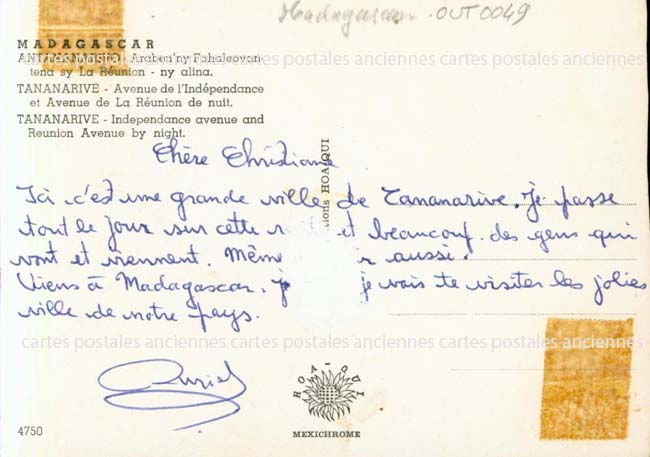 Madagascar OUT0049
MADAGASCAR
ANTANANARIVO - Araben'ny Fahaleovan-
tena sy La Réunion - ny alina.
cartes postales anciennes cartes postales anciennes cartes postales anciennes
TANANARIVE - Avenue de l'Indépendance
et Avenue de La Réunion de nuit.
TANANARIVE - Independance avenue and
Reunion Avenue by night.
Chère Christiane
Ici c'est une grande ville de Tananarive. Je passe
tout le jour sur cette et beaucoup des gens qui
vont et viennent. Même aussi.
Viens à Madagascar. je vais te visiter les jolies
ville de notre pays.
cartes postales anciennes cartes postales anciennes cartes postales anciennes
HOA-QUI
HOA-QUI
4750
MEXICHROME